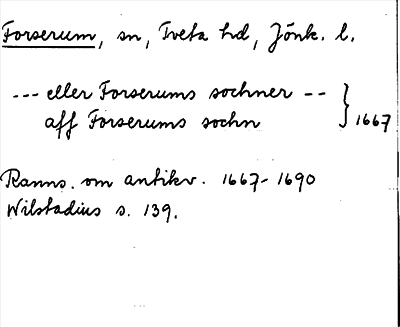 Forserum, sn, Tveta hd, Jönk. l.
--- eller Forserums sochner --
aff Forserums sochn } 1667
Ranns. om antikv. 1667-1690
Wilstadius s. 139.